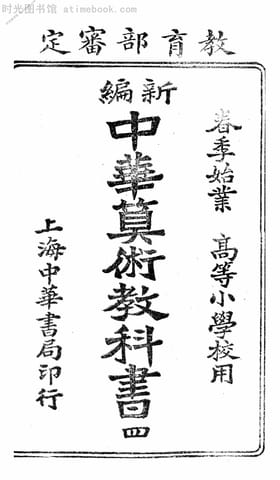 时光图书馆 atimebook.com
教育部審定
春季始業 高等小學校用
新編
中華算術教科書四
上海中華書局印行